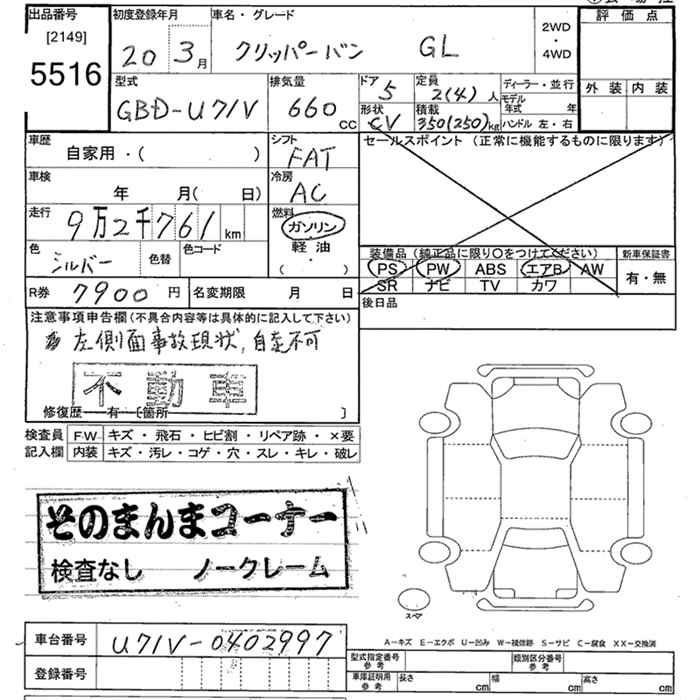 出品番号
[2149]
5516
初度登録年月
20 3月
車名・グレード
クリッパーバン GL
2WD
・
4WD
評価点
外装 内装
型式
GBD-U71V
排気量
660 cc
ドア 5
形状 CV
定員 2(4) 人
積載 350(250)kg
ディーラー・並行
モデル年式 年
ハンドル 左・右
車歴
自家用・( )
シフト
FAT
車検
年 月( 日)
冷房
AC
走行
9万2千761 km
燃料
ガソリン
軽油
・
( )
色
シルバー
色替
色コード
セールスポイント (正常に機能するものに限ります)
装備品 (純正品に限り○をつけてください)
PS PW ABS エアB AW
SR ナビ TV カワ
新車保証書
有・無
R券 7900 円
名変期限 月 日
後日品
注意事項申告欄(不具合内容等は具体的に記入して下さい)
左側面事故現状, 自走不可
不動車
修復歴 有 [箇所 ]
検査員 FW キズ・飛石・ヒビ割・リペア跡・×要
記入欄 内装 キズ・汚レ・コゲ・穴・スレ・キレ・破レ
そのまんまコーナー
検査なし ノークレーム
スペア
車台番号 U71V-0402997
登録番号
A-キズ E-エクボ U-凹み W-補修跡 S-サビ C-腐食 XX-交換済
型式指定番号 参考
類別区分番号 参考
車庫証明用 参考 長さ cm 幅 cm 高さ cm